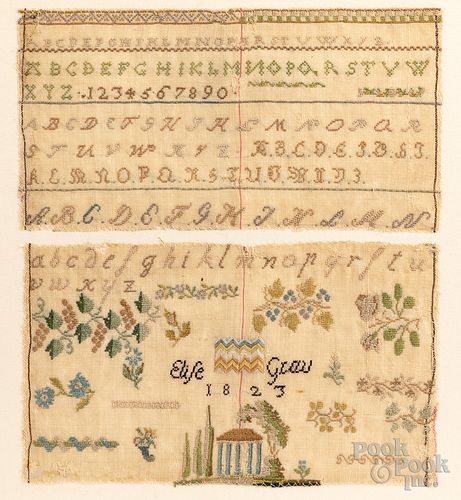 ABCDEFGHIKLMNOPQRSTUVWXYZ
ABCDEFGHIKLMNOPQRSTVW
XYZ·1234567890
ABCDEFGHIKLMNOPQR
STUVWXYZ
A B C D E F G H I K L M N
abcdefghiklmnopqrſstu
vwxyz
Elise Grau
1823
Pook
& Pook inc.